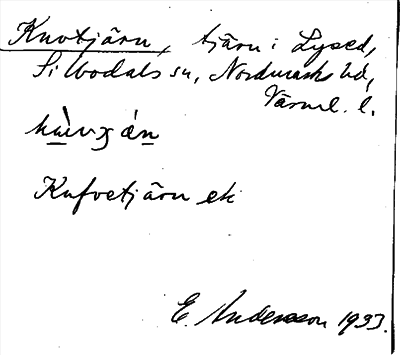 Knotjärn, tjärn i Lysed,
Silbodals sn, Nordmarks hd,
Värml. l.
Kufvetjärn ek
E. Andersson 1933.